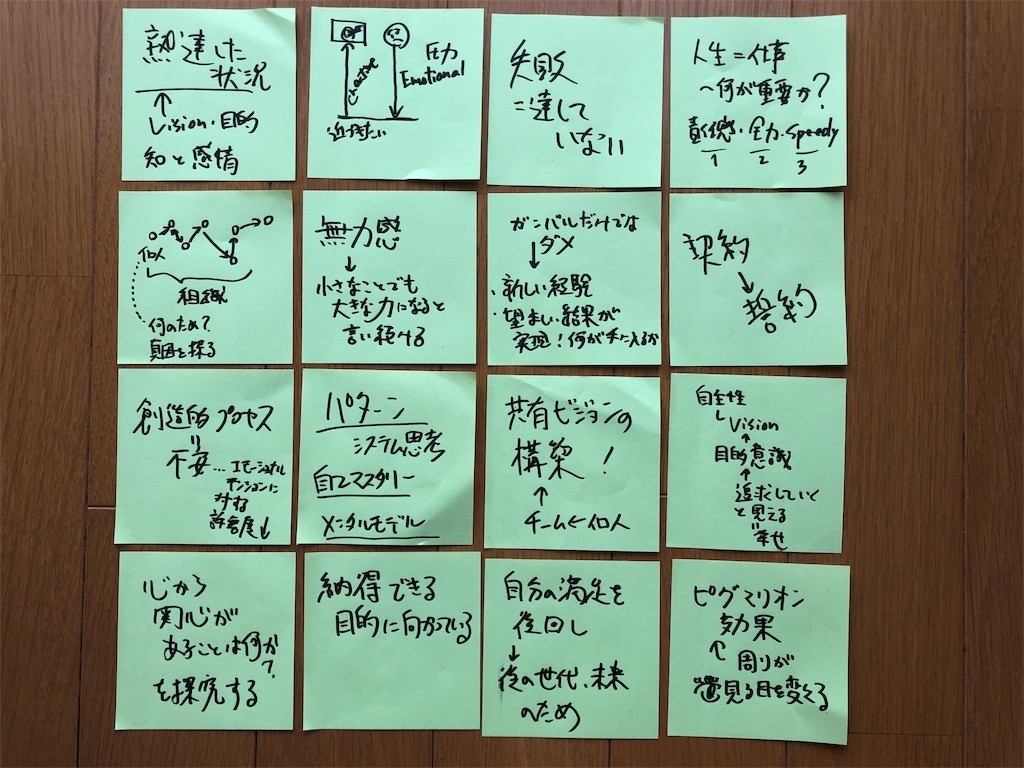 熟達した
状況
↑
Vision・目的
知と感情
Creative
圧力
Emotional
近づきたい
失敗
=達して
いない
人生=仕事
~何が重要か?
責任感・全力・speedy
1 2 3
個人
組織
何のため?
真因を探る
無力感
↓
小さなことでも
大きな力になると
言い続ける
ガンバルだけでな
ダメ
↓
・新しい経験
・望ましい結果が
実現!何が手に入るか
契約
↘
誓約
創造的プロセス
〃
不安…エモーショナル
テンションに
対する
許容度↓
パターン
システム思考
自己マスタリー
メンタルモデル
共有ビジョンの
構築!
↑
チーム←個人
自主性
Vision
↑
目的意識
↑
追求していく
と見える
〃
幸せ
心から
関心が
あることは何か?
を探究する
納得できる
目的に向かっている
自分の満足を
後回し
↓
後の世代、未来
のため
ピグマリオン
効果
↑
周りが
見る目を変える